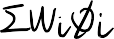 ΣWiϕi